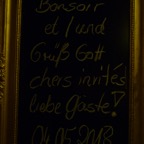 Bonsoir
et / und
Grüß Gott
chers invités
liebe Gäste!
04.05.2013